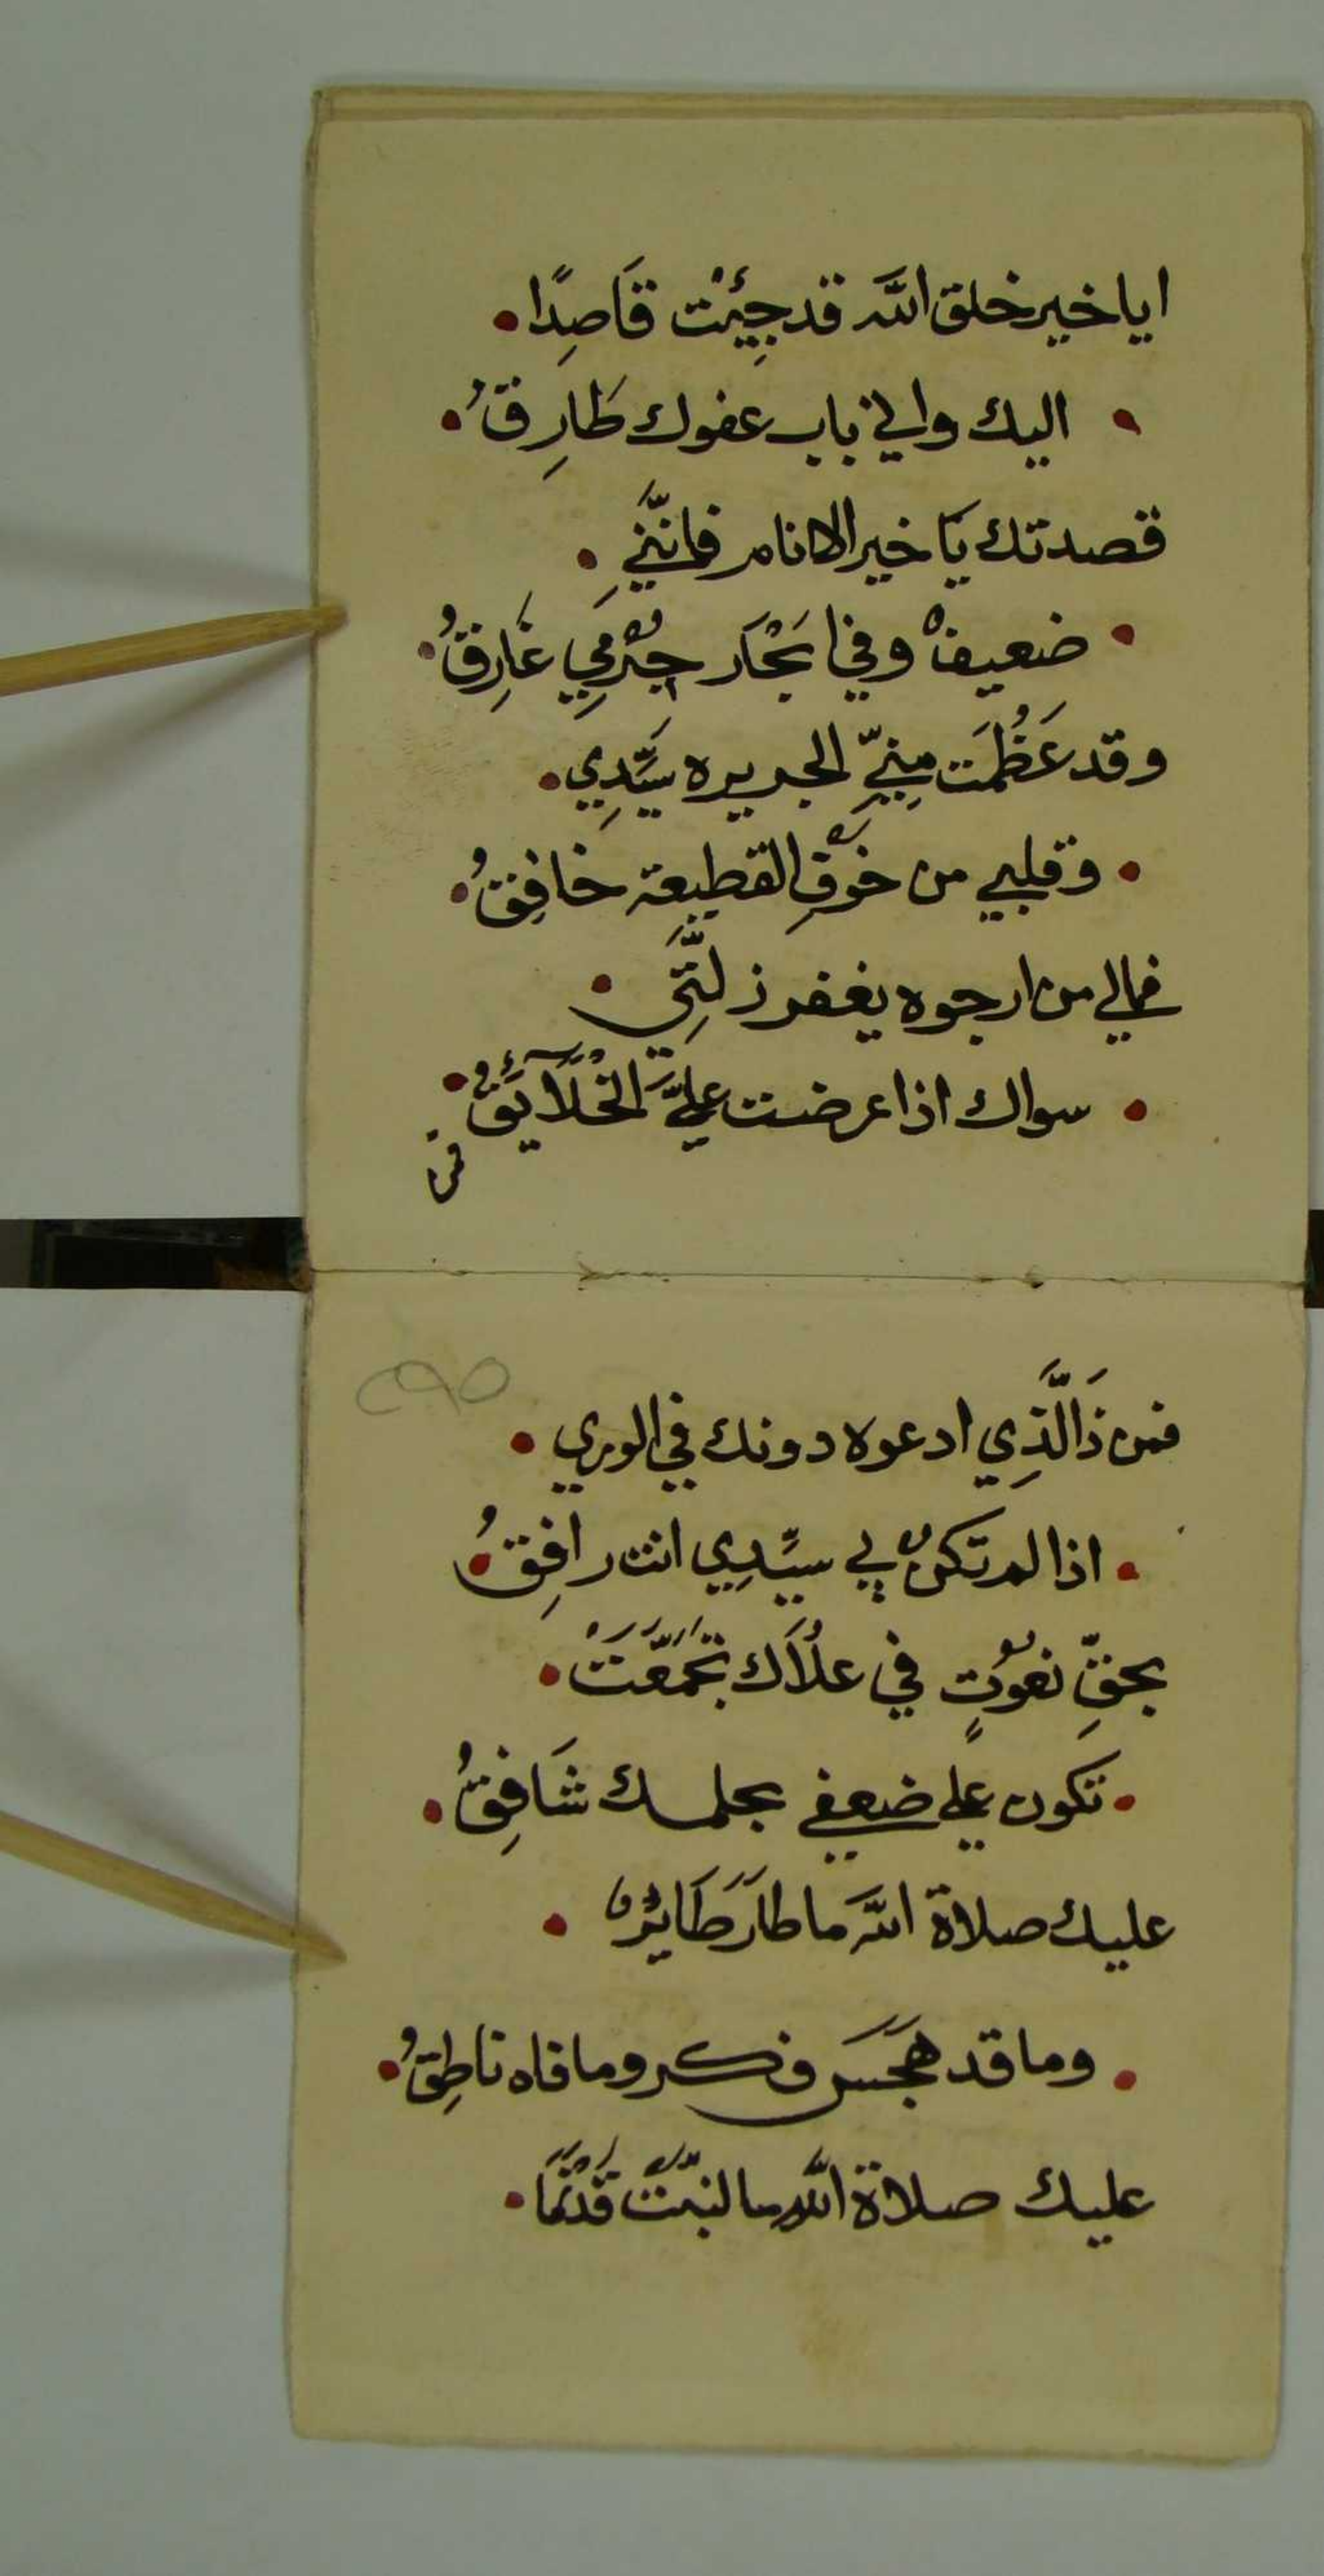 ايا خير خلق الله قد جِيْئت قَاصِدًا
اليك واني باب عفوك طَارِقُ
قصدتك يَا خير الانام فانَّنِي
ضعيفٌ وفي ابْحَار جُرْمِي غَارِقُ
وقد عَظُمَت مِنِّي الجريره سَيِّدِي
وقلبي من خَوْفِ القطيعة خافِقُ
فمالي من ارجوه يغفر زلَّتِي
سواك اذا عرضت عليَّ الْخَلَآئَقُ
فمن
فمن ذَا الَّذِي ادعوه دونك في الوري
اذا لم تَكُنْ لي سيِّدِي انت رافِقُ
بحقِّ نعُوْتٍ في علُاَك تَجَمَّعَتْ
تكون علي ضعفي بحلمك شَافِقُ
عليك صلاة اللهَ ما طَارَ طَايْرٌ
وما قد هَجَسَ فكر وما فاه ناطِقُ
عليك صلاة الله